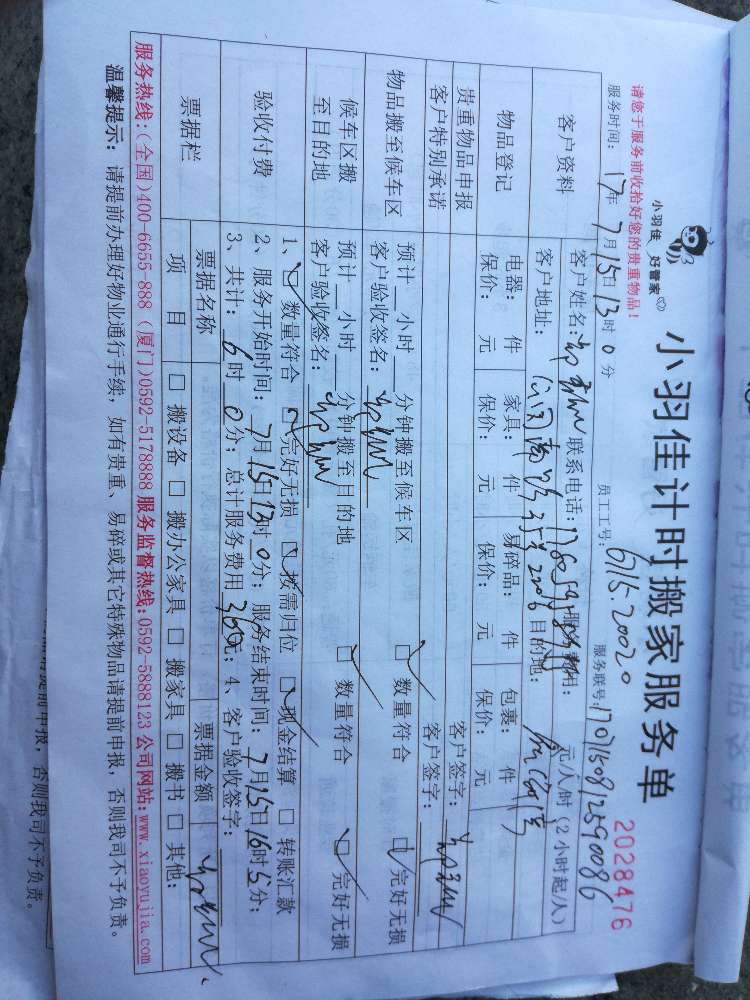 小羽佳 好管家
小羽佳计时搬家服务单
2028476
请您于服务前收拾好您的贵重物品!
服务时间: 17年 7月15日13时 0分 员工工号: 6115.20020 服务联号:
客户资料 客户姓名: 联系电话: 元/人/时(2小时起/人)
客户地址: 目的地:
物品登记 电器: 件 家具: 件 易碎品: 件 包裹: 件
保价: 元 保价: 元 保价: 元 保价: 元
贵重物品申报 客户签字:
客户特别承诺 客户签字:
物品搬至候车区 预计__小时__分钟搬至候车区 □ 数量符合 □ 完好无损
客户验收签名:
候车区搬至目的地 预计__小时__分钟搬至目的地 □ 数量符合 □ 完好无损
客户验收签名:
验收付费 1、□ 数量符合 □ 完好无损 □ 按需归位 □ 现金结算 □ 转账汇款
2、服务开始时间: 7月15日13时 0分; 服务结束时间: 7月15日16时5分;
3、共计: 6时 0分; 总计服务费用 360元; 4、客户验收签字:
票据栏 票据名称 票据金额
项 目 □ 搬设备 □ 搬办公家具 □ 搬家具 □ 搬书 □ 其他:
服务热线:(全国)400-6655-888 (厦门)0592-5178888 服务监督热线:0592-5888123 公司网站:www.xiaoyujia.com
温馨提示: 请提前办理好物业通行手续, 如有贵重、易碎或其它特殊物品请提前申报, 否则我司不予负责。
前申报, 否则我司不予负责。